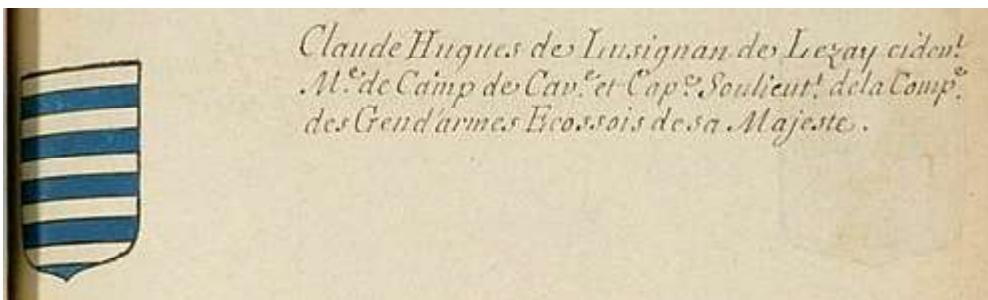 Claude Hugues de Lusignan de Lezay cideu.t
M.e de Camp de Cav.e et Cap.e Soulieut.t de la Comp.e
des Gend'armes Ecossois de sa Majeste.